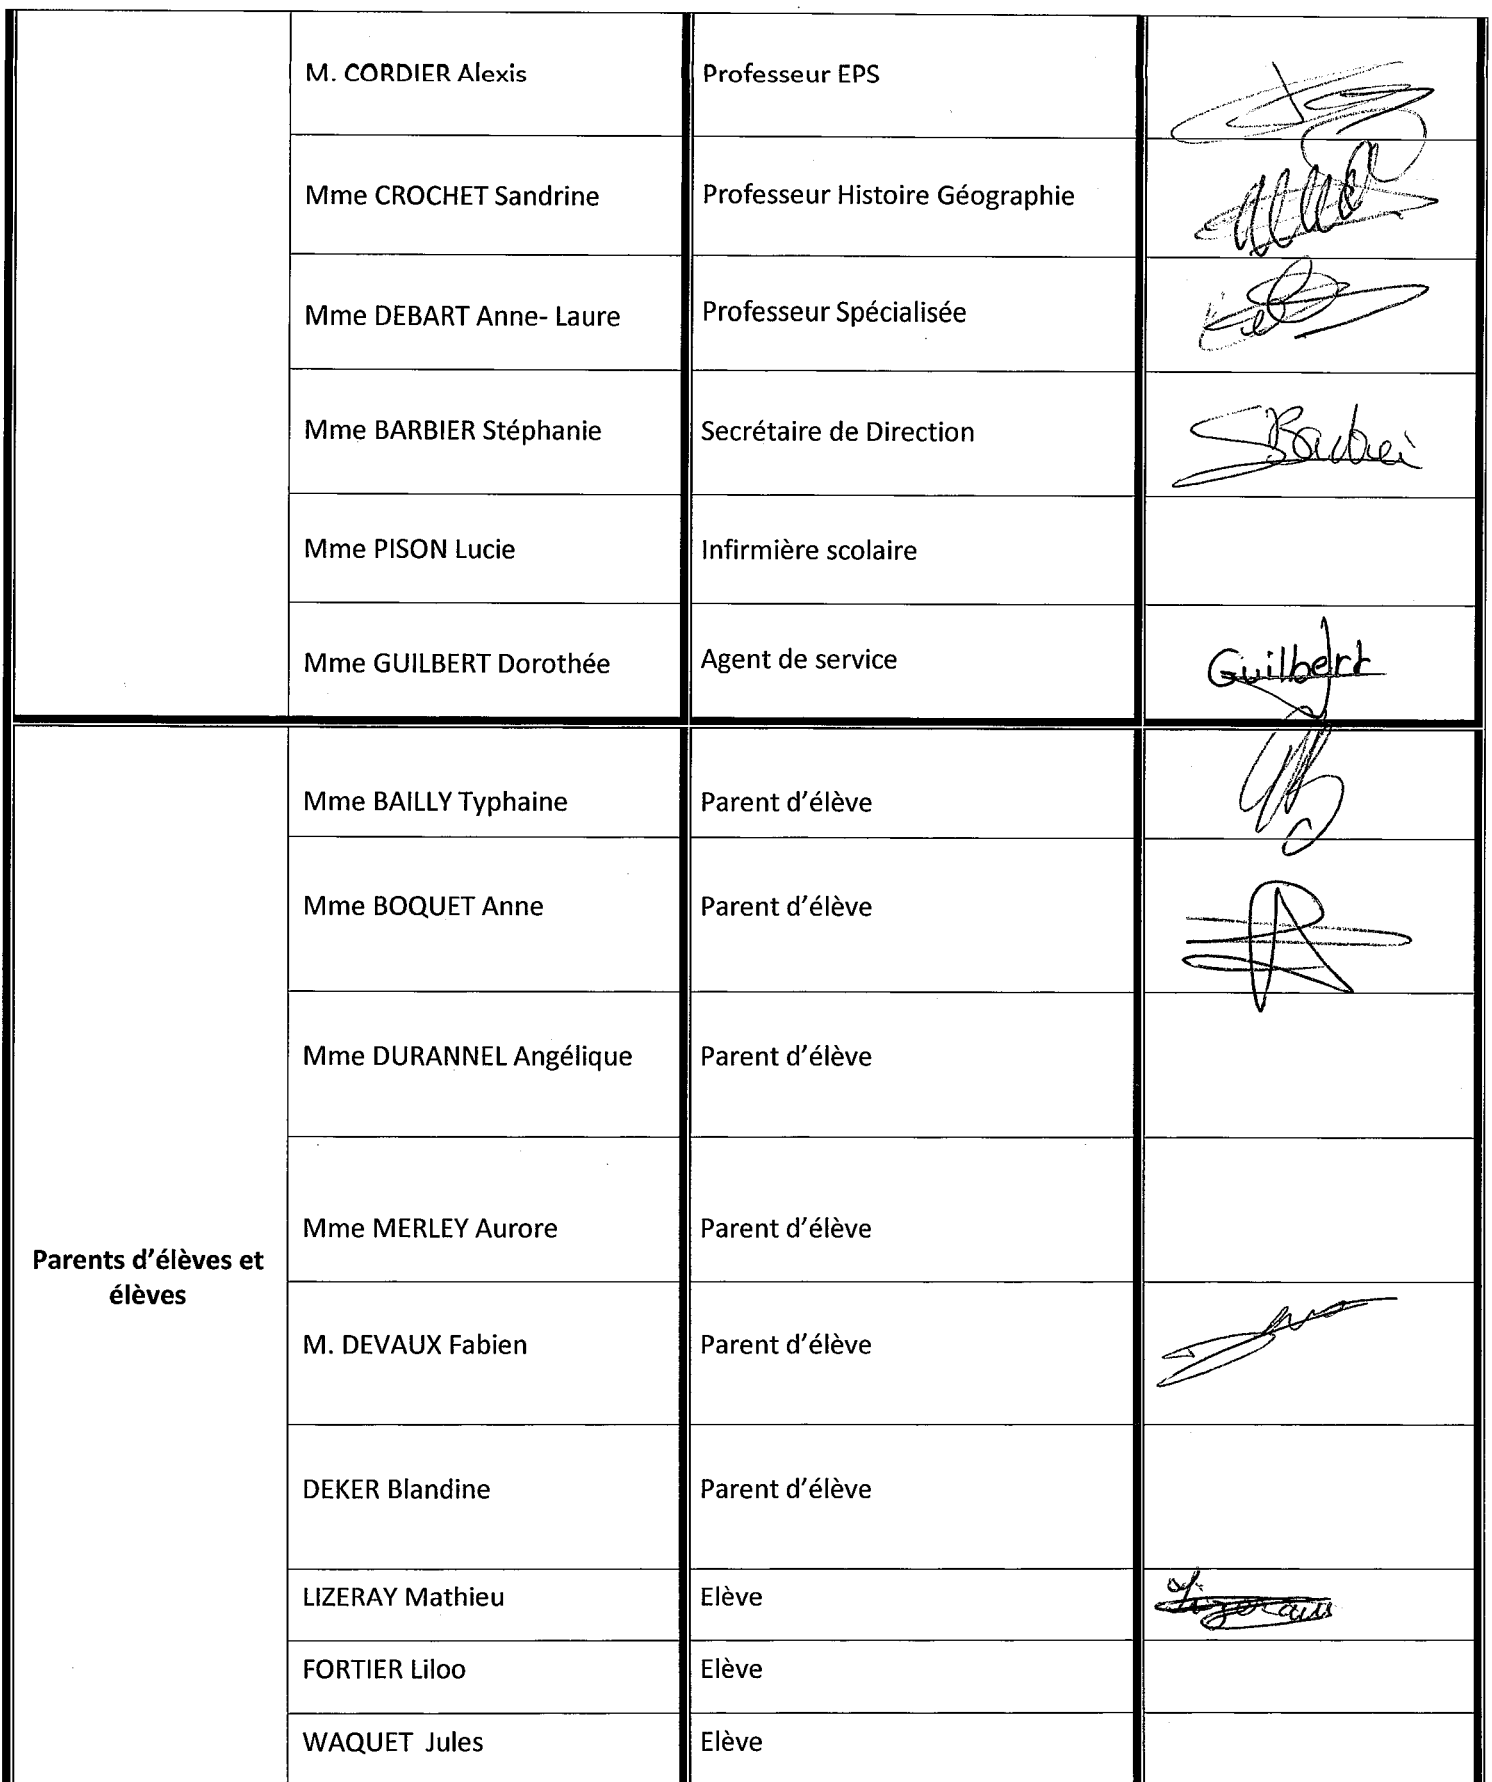 M. CORDIER Alexis
Professeur EPS
Mme CROCHET Sandrine
Professeur Histoire Géographie
Mme DEBART Anne- Laure
Professeur Spécialisée
Mme BARBIER Stéphanie
Secrétaire de Direction
SBarbier
Mme PISON Lucie
Infirmière scolaire
Mme GUILBERT Dorothée
Agent de service
Guilbert
Parents d'élèves et
élèves
Mme BAILLY Typhaine
Parent d'élève
Mme BOQUET Anne
Parent d'élève
Mme DURANNEL Angélique
Parent d'élève
Mme MERLEY Aurore
Parent d'élève
M. DEVAUX Fabien
Parent d'élève
DEKER Blandine
Parent d'élève
LIZERAY Mathieu
Elève
FORTIER Liloo
Elève
WAQUET Jules
Elève